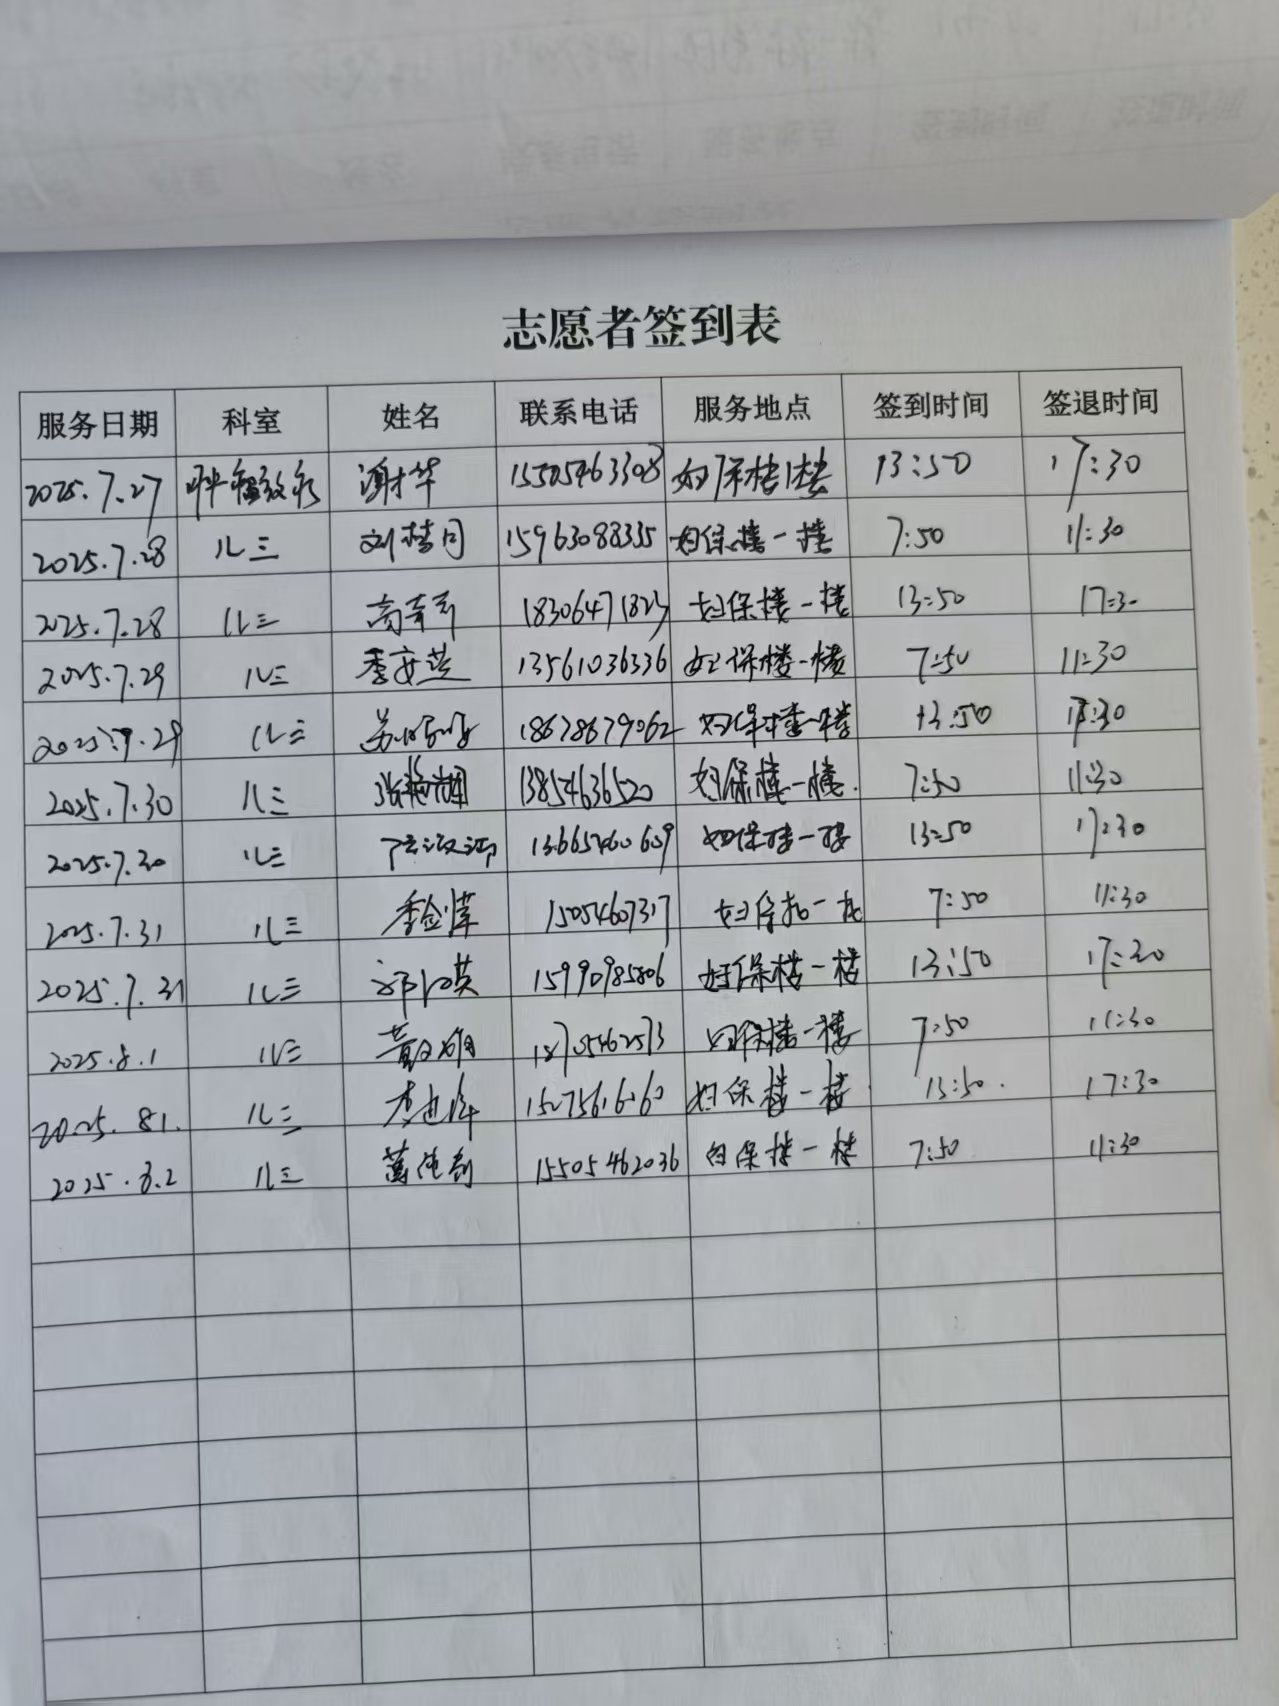 志愿者签到表
服务日期 科室 姓名 联系电话 服务地点 签到时间 签退时间
2025.7.27 谢才华 15505463308 妇保楼1楼 13:50 17:30
2025.7.28 儿三 刘梦月 15963088335 妇保楼一楼 7:50 11:30
2025.7.28 儿三 1830647182 妇保楼一楼 13:50 17:30
2025.7.29 儿三 13561036336 妇保楼一楼 7:50 11:30
2025.7.29 儿三 18678679062 妇保楼一楼 13:50 17:30
2025.7.30 儿三 13854636520 妇保楼一楼. 7:50 11:30
2025.7.30 儿三 13665460609 妇保楼一楼 13:50 17:30
2025.7.31 儿三 15054607317 妇保 7:50 11:30
2025.7.31 儿三 15990985806 妇保楼一楼 13:50 17:30
2025.8.1 儿三 18705462573 妇保楼一楼 7:50 11:30
2025.8.1. 儿三 妇保楼一楼 13:50. 17:30
2025.8.2 儿三 15505462036 妇保楼一楼 7:50 11:30